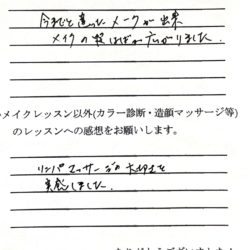 今までと違ったメークが出来
メイクの幅はばが広がりました。
のメイクレッスン以外(カラー診断・造顔マッサージ等)
のレッスンへの感想をお願いします。
リンパマッサージの大切さを
実感しました。